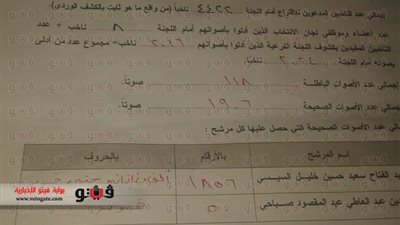 إجمالي عدد الناخبين المدعوين للاقتراع أمام اللجنة ٤٤٢٢ ناخباً (من واقع ما هو ثابت بالكشف الوردى)
عدد أعضاء وموظفي لجان الانتخاب الذين أدلوا بأصواتهم أمام اللجنة ٨ ناخب + عدد
الناخبين المقيدين بكشوف اللجنة الفرعية الذين أدلوا بأصواتهم ٢٠١٦ ناخب= مجموع عدد من أدلى
بصوته أمام اللجنة ٢٠٢٤ ناخب.
إجمالي عدد الأصوات الباطلة ١١٨ صوتاً.
إجمالي عدد الأصوات الصحيحة ١٩٠٦ صوتاً.
عدد الأصوات الصحيحة التي حصل عليها كل مرشح:
اسم المرشح بالأرقام بالحروف
عبد الفتاح سعيد حسين خليل السيسي ١٨٥٦
عبد العاطي عبد المقصود صباحي ٥٠
فيتو
بوابة فيتو الاخبارية
www.vetogate.com